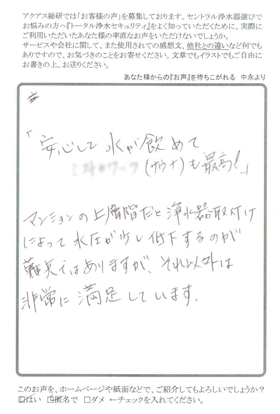 アクアス総研では「お客様の声」を募集しております。セントラル浄水器選びで
お悩みの方へ『トータル浄水セキュリティ』をよく知っていただくために、実際に
ご利用いただいたあなた様の率直なお声をいただけないでしょうか。
サービスや会社に関して、また使用されての感想文、他社との違いなど何でも
ありですので、お気づきのことをお寄せください。文章でもイラストでもご自由に
お書きの上、お送りください。
あなた様からの『お声』を待ちこがれる 中永より
「安心して水が飲めて
(サウナ)も最高!」
マンションの上層階だと浄水器取付け
によって水圧が少し低下するのが
難点ではありますが、それ以外は
非常に満足しています。
このお声を、ホームページや紙面などで、ご紹介してもよろしいでしょうか?
はい 匿名で □ダメ ←チェックを入れてください。